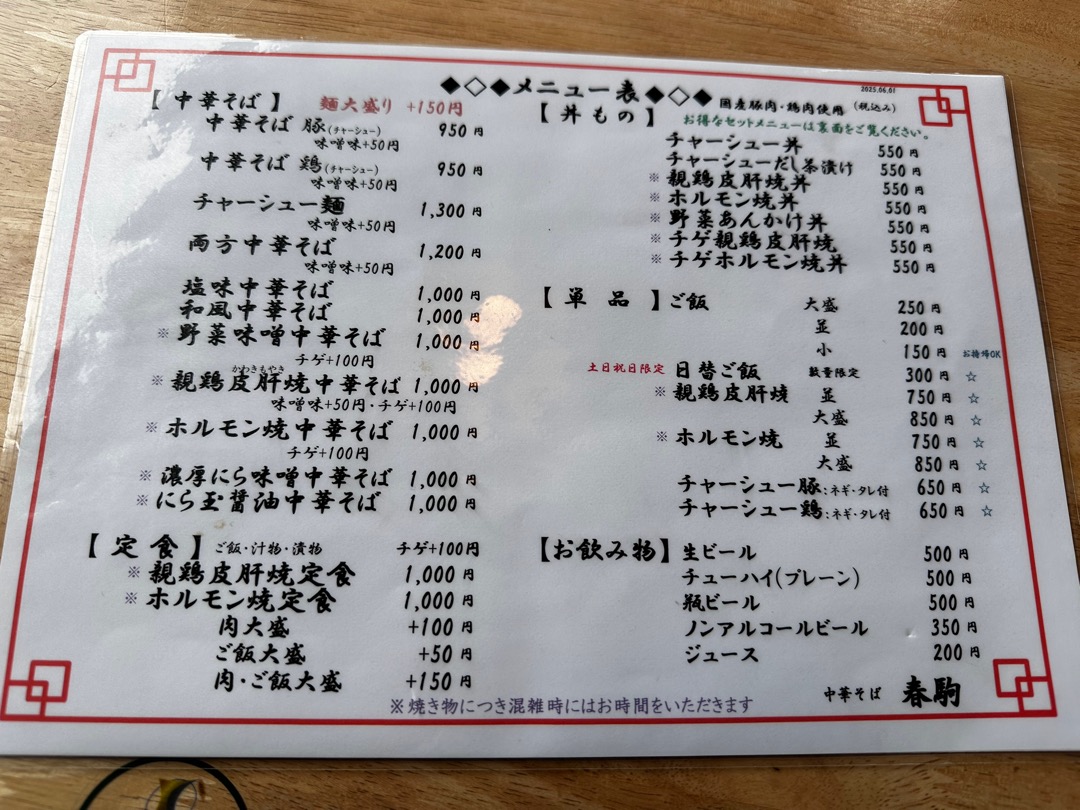 ◆◇◆メニュー表◆◇◆
2025.06.01
国産豚肉・鶏肉使用 (税込み)
お得なセットメニューは裏面をご覧ください。
【 中華そば 】 麺大盛り +150円
中華そば 豚(チャーシュー) 950 円
味噌味+50円
中華そば 鶏(チャーシュー) 950 円
味噌味+50円
チャーシュー麺 1,300 円
味噌味+50円
両方中華そば 1,200 円
味噌味+50円
塩味中華そば 1,000 円
和風中華そば 1,000 円
※ 野菜味噌中華そば 1,000 円
チゲ+100円
かわきもやき
※ 親鶏皮肝焼中華そば 1,000 円
味噌味+50円・チゲ+100円
※ ホルモン焼中華そば 1,000 円
チゲ+100円
※ 濃厚にら味噌中華そば 1,000 円
※ にら玉醤油中華そば 1,000 円
【 定 食 】 ご飯・汁物・漬物 チゲ+100円
※ 親鶏皮肝焼定食 1,000 円
※ ホルモン焼定食 1,000 円
肉大盛 +100 円
ご飯大盛 +50 円
肉・ご飯大盛 +150 円
【 丼もの 】
チャーシュー丼 550 円
チャーシューだし茶漬け 550 円
※ 親鶏皮肝焼丼 550 円
※ ホルモン焼丼 550 円
※ 野菜あんかけ丼 550 円
※ チゲ親鶏皮肝焼 550 円
※ チゲホルモン焼丼 550 円
【 単 品 】 ご飯 大盛 250 円
並 200 円
小 150 円 お持帰OK
土日祝日限定 日替ご飯 数量限定 300 円 ☆
※ 親鶏皮肝焼 並 750 円 ☆
大盛 850 円 ☆
※ ホルモン焼 並 750 円 ☆
大盛 850 円 ☆
チャーシュー豚:ネギ・タレ付 650 円 ☆
チャーシュー鶏:ネギ・タレ付 650 円 ☆
【お飲み物】 生ビール 500 円
チューハイ(プレーン) 500 円
瓶ビール 500 円
ノンアルコールビール 350 円
ジュース 200 円
中華そば 春駒
※焼き物につき混雑時にはお時間をいただきます